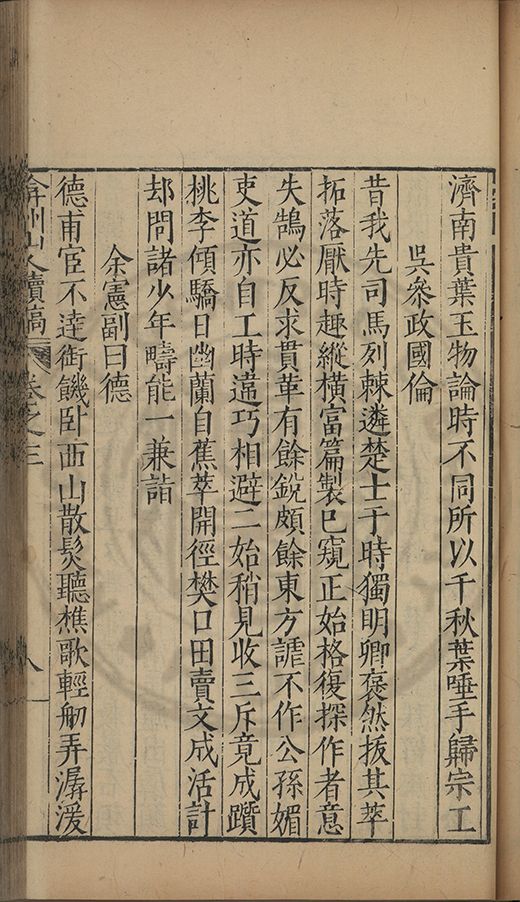 濟南貴葉玉物論時不同所以千秋葉唾手歸宗工
吳叅政國倫
昔我先司馬列棘遴楚士于時獨明卿褎然拔其萃
拓落厭時趣縱橫富篇製已窺正始格復探作者意
失鵠必反求貫革有餘銳頗餘東方謔不作公孫媚
吏道亦自工時當巧相避二始稍見收三斥竟成躓
桃李傾驕日幽蘭自蕉萃開徑樊口田賣文成活計
却問諸少年疇能一兼詣
余憲副曰德
德甫宦不達銜饑卧西山散髮聽樵歌輕舠弄潺湲
弇州山人續稿 卷之三 八